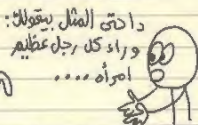 دا حتى المثل بيقولك:
وراء كل رجل عظيم
امرأة ....